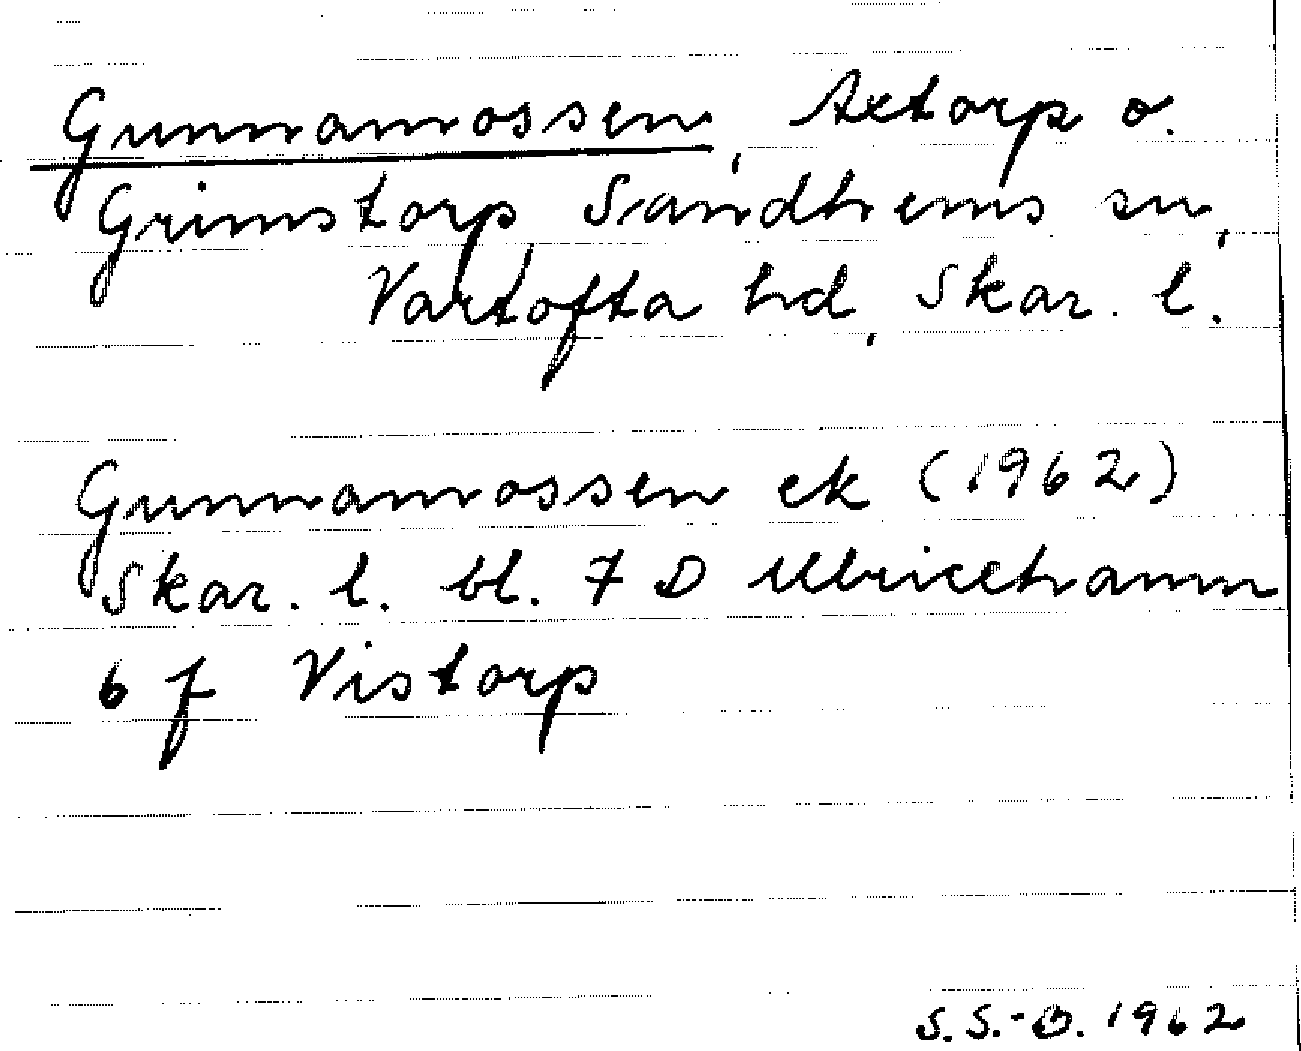 Gunnamossen, Axtorp o.
Grimstorp, Sandhems sn,
Vartofta hd, Skar. l.
Gunnamossen ek (1962)
Skar. l. bl. 7 D Ulricehamn
6 f Vistorp
S.S.-O. 1962